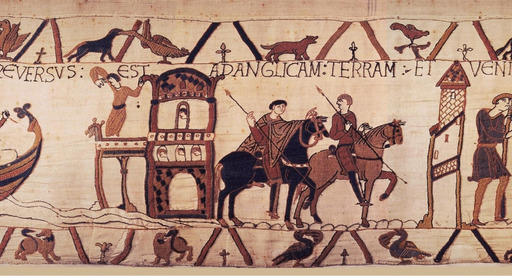 REVERSVS: EST AD ANGLICAM: TERRAM:- ET VENIT